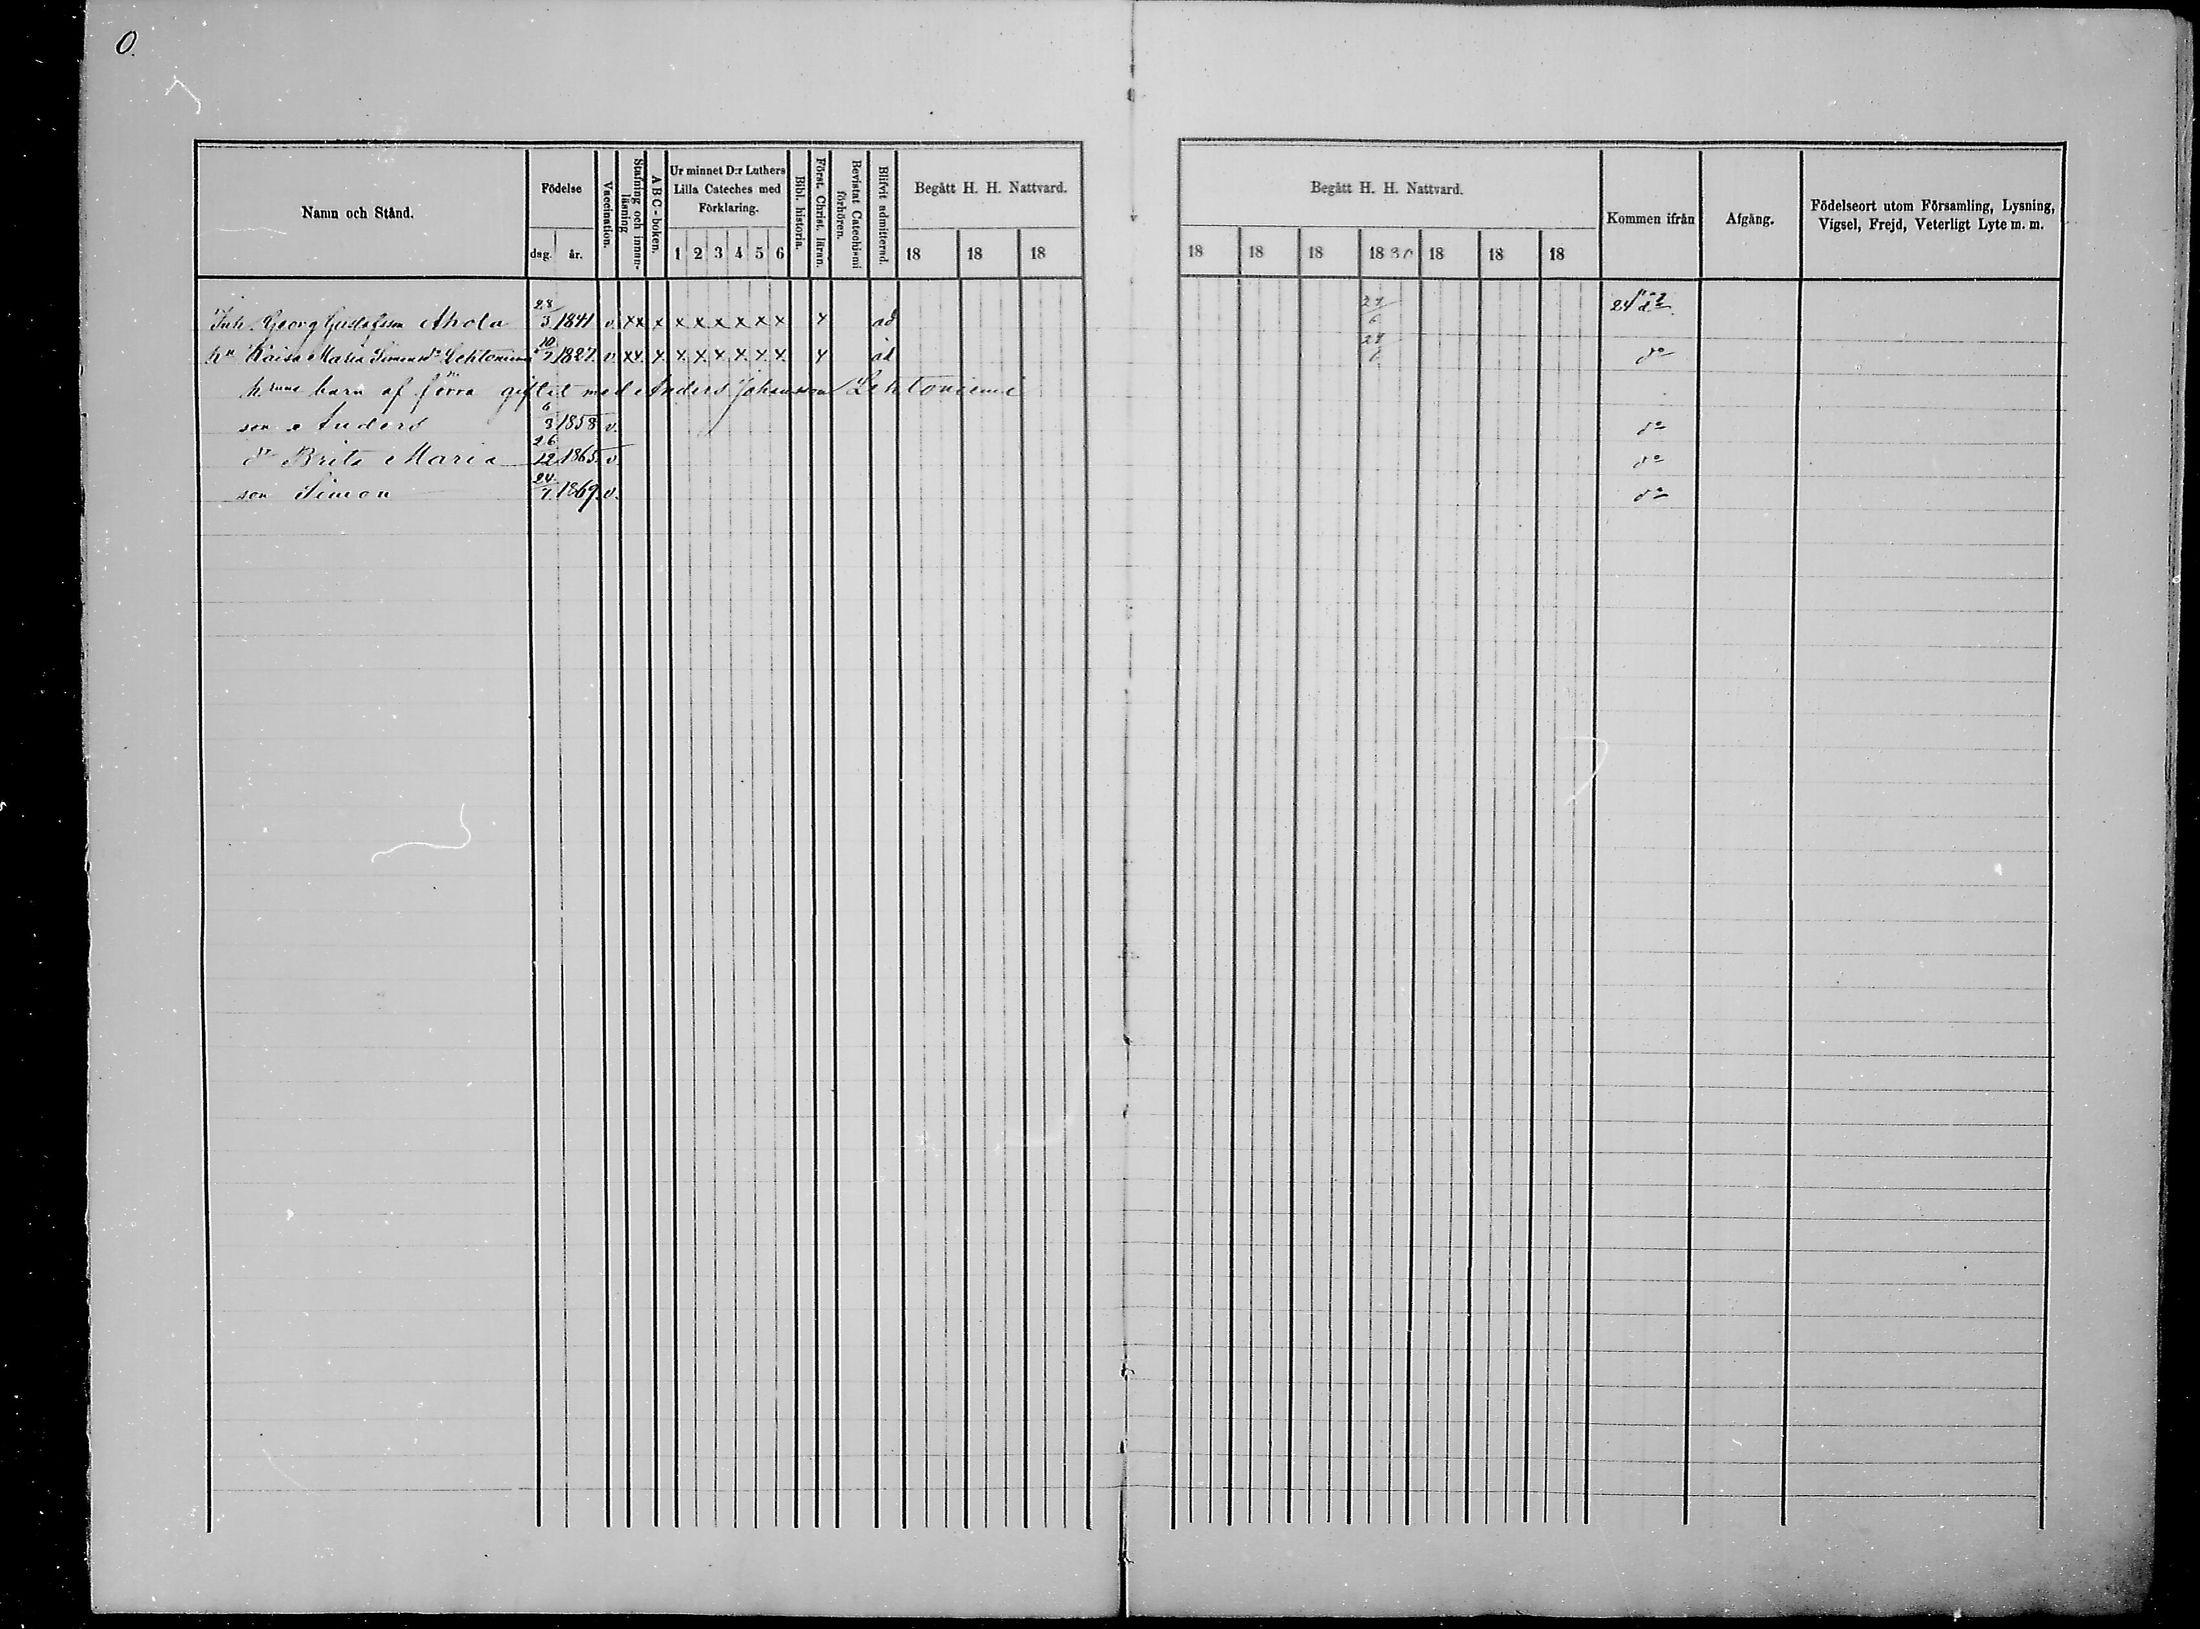 O.
Namn och Stånd. Födelse dag. år. Vaccination. Stafning och innanläsning A B C-boken. Ur minnet D:r Luthers Lilla Cateches med Förklaring. 1 2 3 4 5 6 Bibl. historia. Först. Christ. läran. Bevistat Catechismi förhören. Blifvit admitterad. Begått H. H. Nattvard. 18 18 18
Begått H. H. Nattvard. 18 18 18 1880 18 18 18 Kommen ifrån Afgång. Födelseort utom Församling, Lysning, Vigsel, Frejd, Veterligt Lyte m. m.
Inh. Georg Gustafsson Ahola 28/3 1841 v. xx x x x x x x x x ad 27/6
hu Kaisa Maria Simonsdr Lehtoniemi 10/7 1827 v. xx x x x x x x x x ad 27/6 do
hennes barn af förra giftet med Anders Johansson Lehtoniemi
son Anders 6/3 1858 v. do
dr Brita Maria 26/12 1865 v. do
son Simon 24/7 1869 v. do